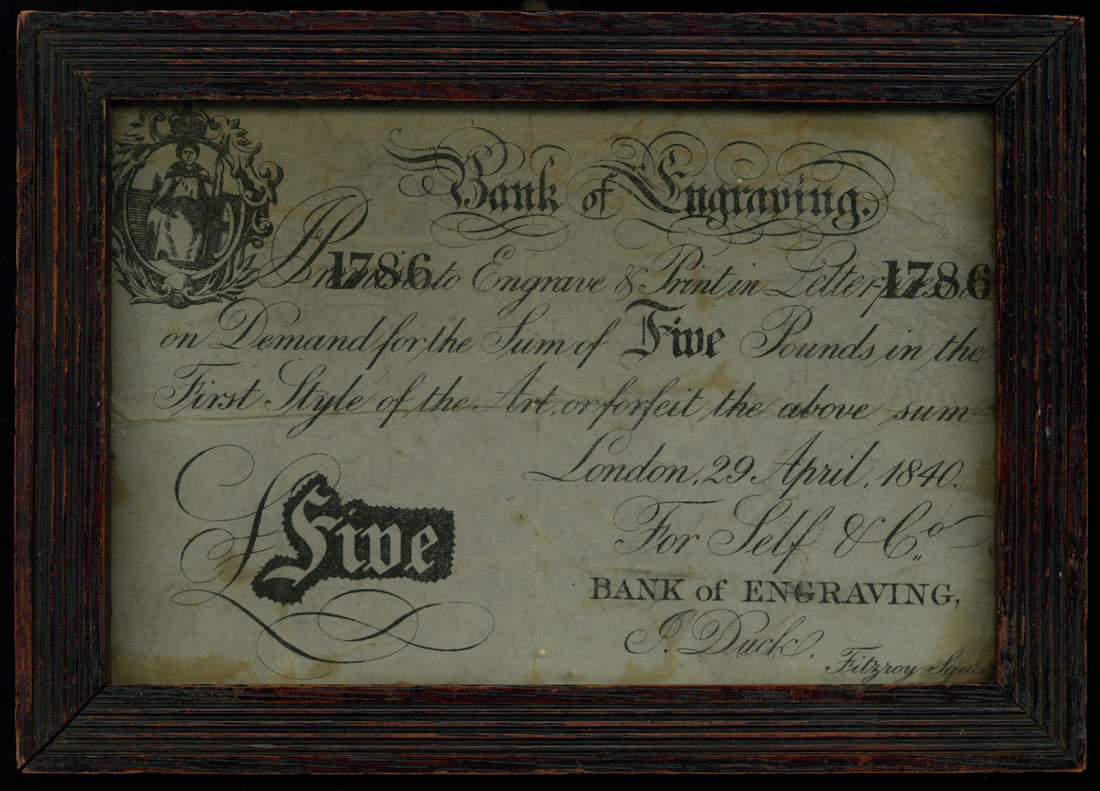 Bank of Engraving.
I Promise to Engrave & Print in Letter-press
1786 1786
on Demand for the Sum of Five Pounds in the
First Style of the Art, or forfeit the above sum
London, 29 April, 1840.
£ Five
For Self & Co.
BANK of ENGRAVING,
J. Duck.
Fitzroy